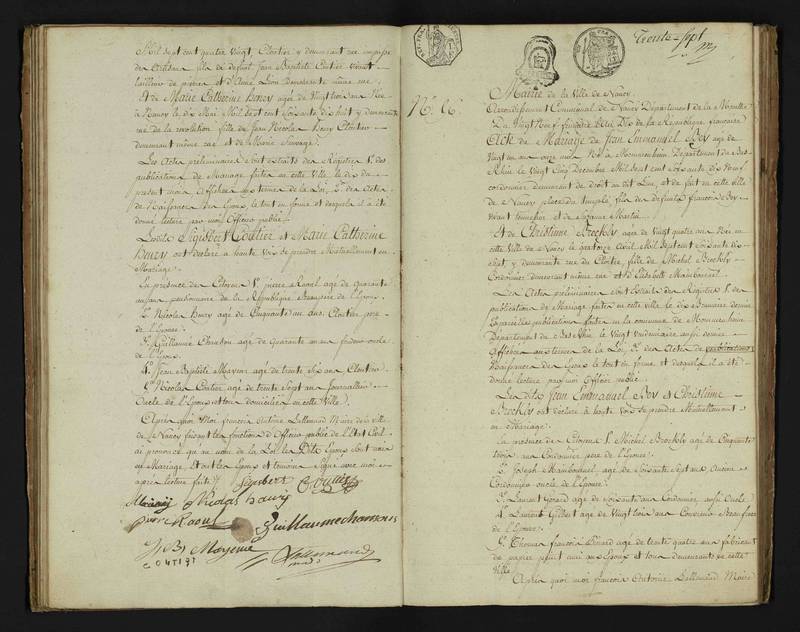 Mil sept cent quatre vingt, Cloutier y demeurant rue
fils de defunt Jean Baptiste Coutier vivant
tailleur de pierres et d'Anne demeurante même rue
Et de Marie Catherine Henry agée de Vingt trois ans Née
à Nancy le dix Mai Mil sept cent Soixante dix huit y demeurante
rue de la revolution fille de Jean Nicolas Henry Cloutier
demeurant même rue et de Marie Sauvage
Les Actes préliminaires sont extraits des Registres 1°. des
publications de Mariage faites en cette Ville le dix du
present mois Affichées aux termes de la Loi, 2°. des Actes
de Naissances des Epoux, le tout en forme et desquels il a été
donné lecture par moi Officier public
Lesdits Sigisbert Coutier et Marie Catherine
Henry ont déclaré à haute voix se prendre Mutuellement en
Mariage.
En présence des Citoyens 1°. pierre Raoul agé de quarante
ans, pensionnaire de la République Beaupere de l'Epoux.
2°. Nicolas Henry agé de Cinquante un ans Cloutier pere
de l'Epouse.
3°. Guillaume Chanson agé de Quarante ans
de l'Epoux
4°. Jean Baptiste Mayeur agé de trente Six ans Cloutier
5°. Nicolas Coutier agé de trente Sept ans Journallier
Oncle de l'Epoux et tous domiciliés en cette Ville
Après quoi Moi françois Antoine Lallemand Maire de la ville
de Nancy faisant les fonctions d'Officier public de l'Etat Civil
ai prononcé qu'au nom de la Loi les Dits Epoux sont unis
en Mariage. Et ont les Epoux et temoins Signé avec moi
après lecture faite
Nicolas Henry
pierre Raoul
Guillaume chanson
J B Mayeur
Lallemand
COUTIER
Trente-Sept
N°. 26.
Mairie de la Ville de Nancy.
Arrondissement Communal de Nancy Département de la Meurthe
Du Vingt Neuf frimaire dix de la République française
Acte de Mariage de Jean Emmanuel Boy agé de
Vingt un ans onze mois Né à Mommenheim Département du Bas
Rhin le Vingt Cinq Decembre Mil Sept cent Soixante dix Neuf
cordonnier demeurant de droit au dit Lieu, et de fait en cette ville
de Nancy place du temple, fils de defunts francois Boy
vivant tonnellier et de
Et de Christienne Breckly agée de vingt quatre ans Née en
cette Ville de Nancy le quatorze Avril Mil Sept cent Soixante dix
Sept y demeurante rue du Cloître, fille de Michel Breckly
Cordonnier demeurant même rue et d'Elisabeth Mambourel
Les Actes préliminaires sont Extraits des Registres 1°. des
publications de Mariage faites en cette ville le dix Brumaire dernier
2°. des publications faites en la commune de Mommenheim
Département du Bas Rhin le Vingt Vendemiaire aussi dernier
Affichées aux termes de la Loi, 3°. des Actes de publications
Naissances des Epoux le tout en forme et desquels il a été
donné lecture par moi Officier public
Les dits Jean Emmanuel Boy et Christienne
Breckly ont déclaré à haute voix se prendre Mutuellement
en Mariage.
En présence des Citoyens 1°. Michel Breckly agé de Cinquante
trois ans Cordonnier pere de l'Epouse.
2°. Joseph Mambourel agé de Soixante Sept ans Ancien
Cordonnier oncle de l'Epouse.
3°. Laurent Gérard agé de Soixante ans Cordonnier aussi Oncle
4°. Laurent Gilbert agé de Vingt trois ans Couvreur Beaufrere
de l'Epouse.
5°. Thomas françois Bénard agé de trente quatre ans fabricant
de papier peint ami des Epoux et tous demeurants en cette
Ville
Après quoi moi françois Antoine Lallemand Maire